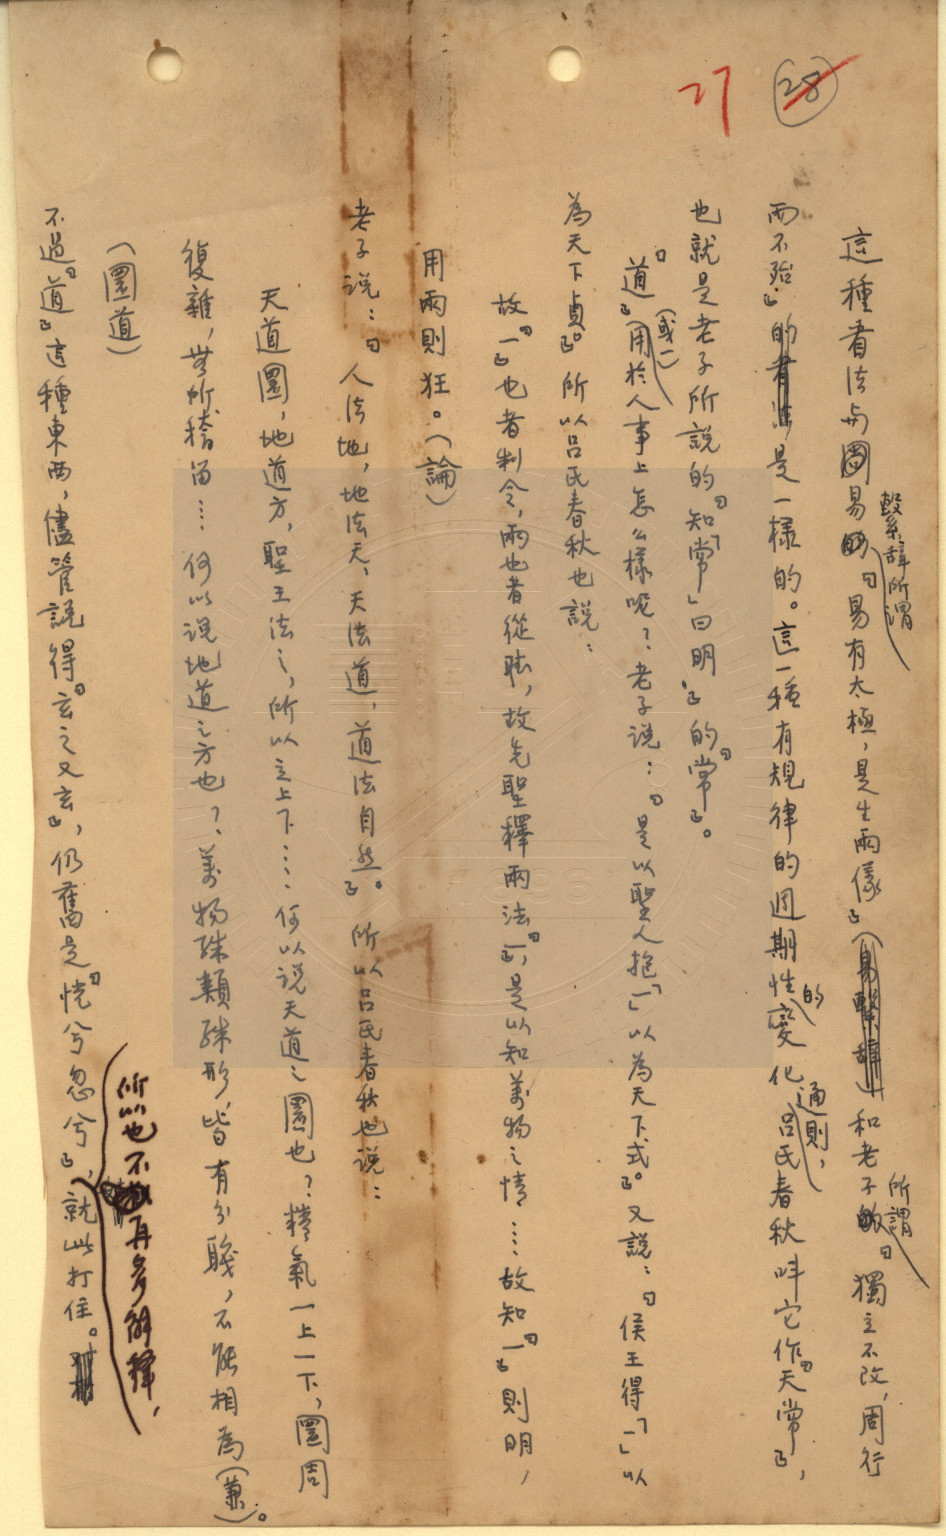 27
28
這種看法与周易繫辭所謂『易有太極，是生兩儀』和老子所謂『獨立不改，周行
而不殆』是一樣的。這一種有規律的週期性的變化通則，呂氏春秋叫它作『天常』，
也就是老子所說的『知「常」曰明』的『常』。
『道』（或一）用於人事上怎么樣呢？老子說：『是以聖人抱「一」以為天下式』。又說：『侯王得「一」以
為天下貞』。所以呂氏春秋也說：
故『一』也者制令，兩也者從聽，故先聖釋兩法『一』，是以知萬物之情……故知『一』則明，
用兩則狂。（論）
老子說：『人法地，地法天，天法道，道法自然』。所以呂氏春秋也說：
天道圜，地道方，聖王法之，所以立上下……何以說天道之圜也？精氣一上一下，圜周
復雜，無所稽留……何以說地道之方也？萬物殊類殊形，皆有分職，不能相為（兼）。
（圜道）
不過『道』這種東西，儘管說得『玄之又玄』，仍舊是『恍兮忽兮』，所以也不再多解釋，就此打住。